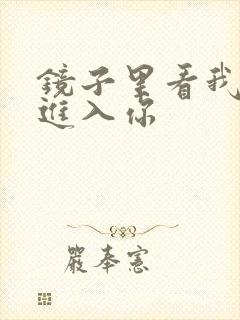 鏡子里看我
進入你
嚴奉憲